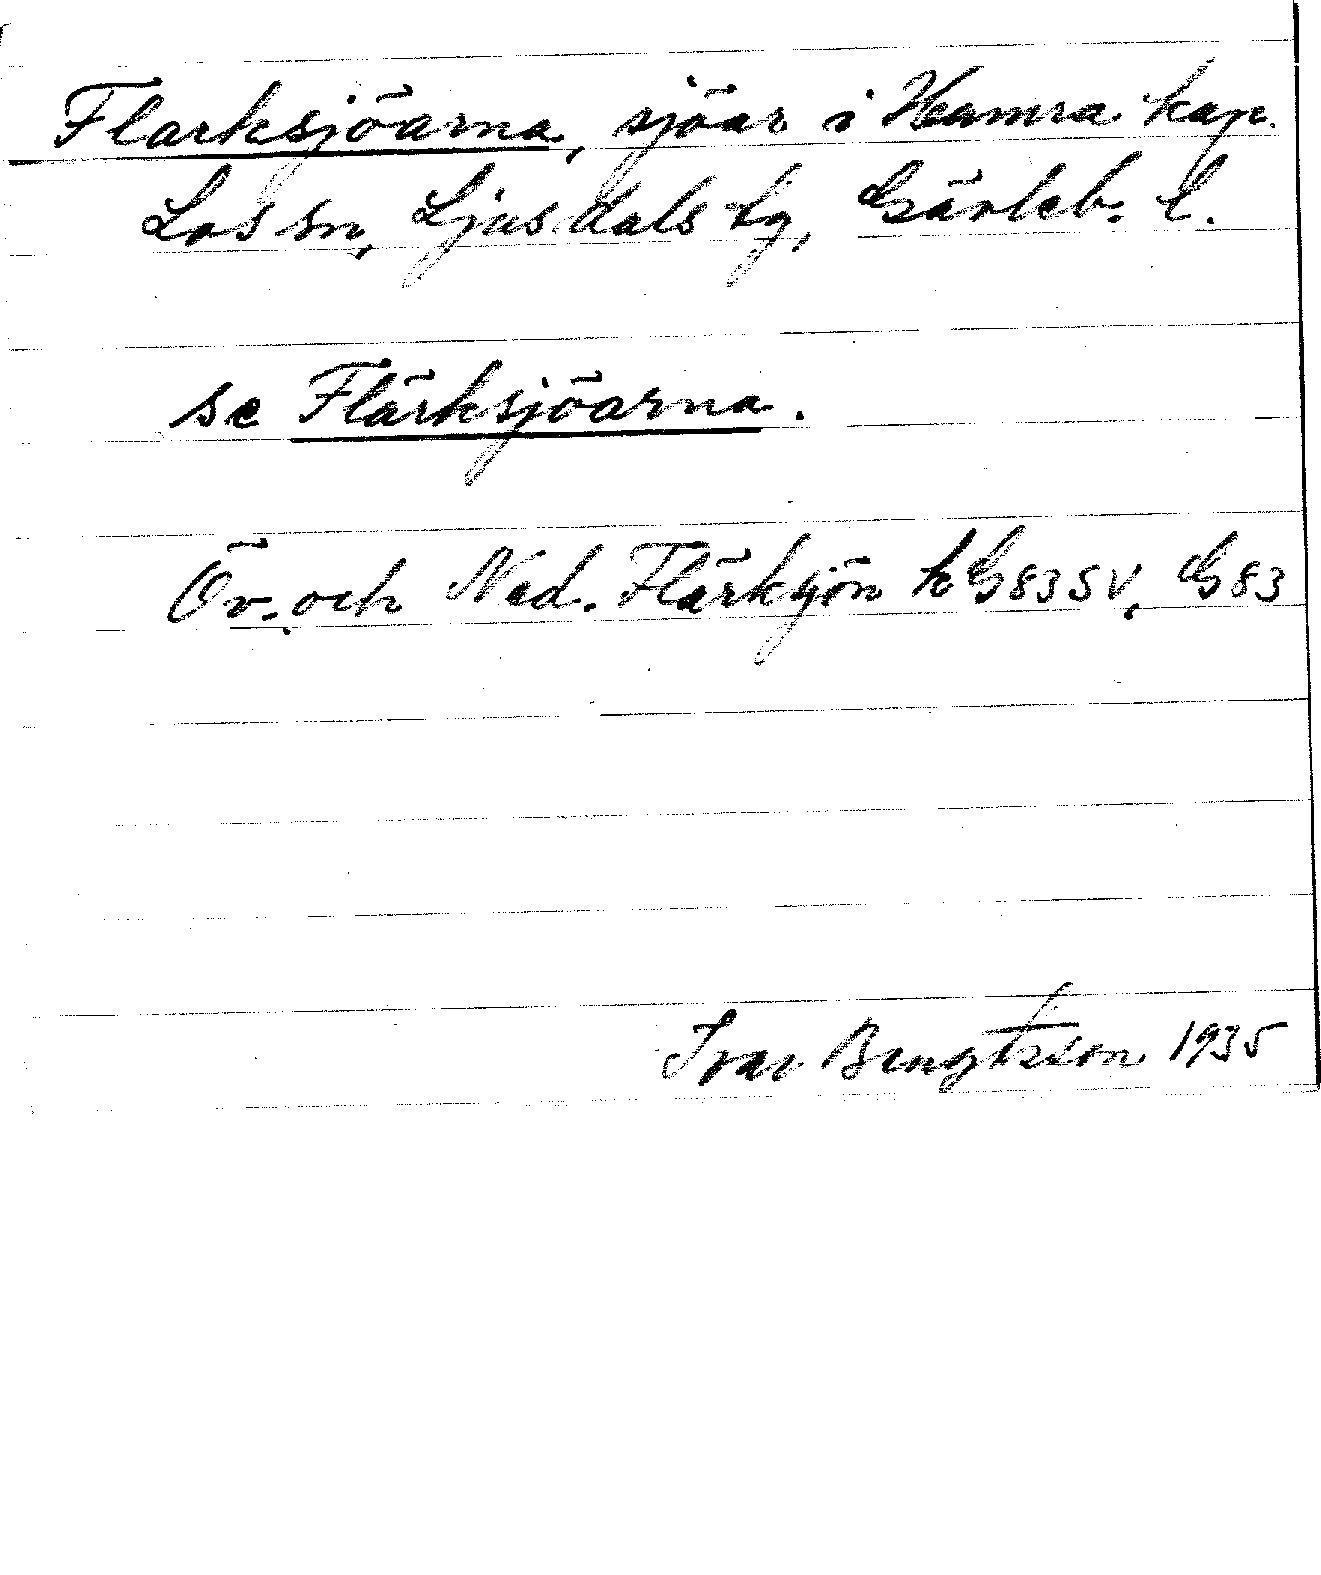 Flarksjöarna, sjöar i Hamra kap.
Los sn, Ljusdals tg, Gävleb. l.
se Flärksjöarna.
Öv. och Ned. Flärksjön k G83SV, G83
Ivar Bengtsson 1935